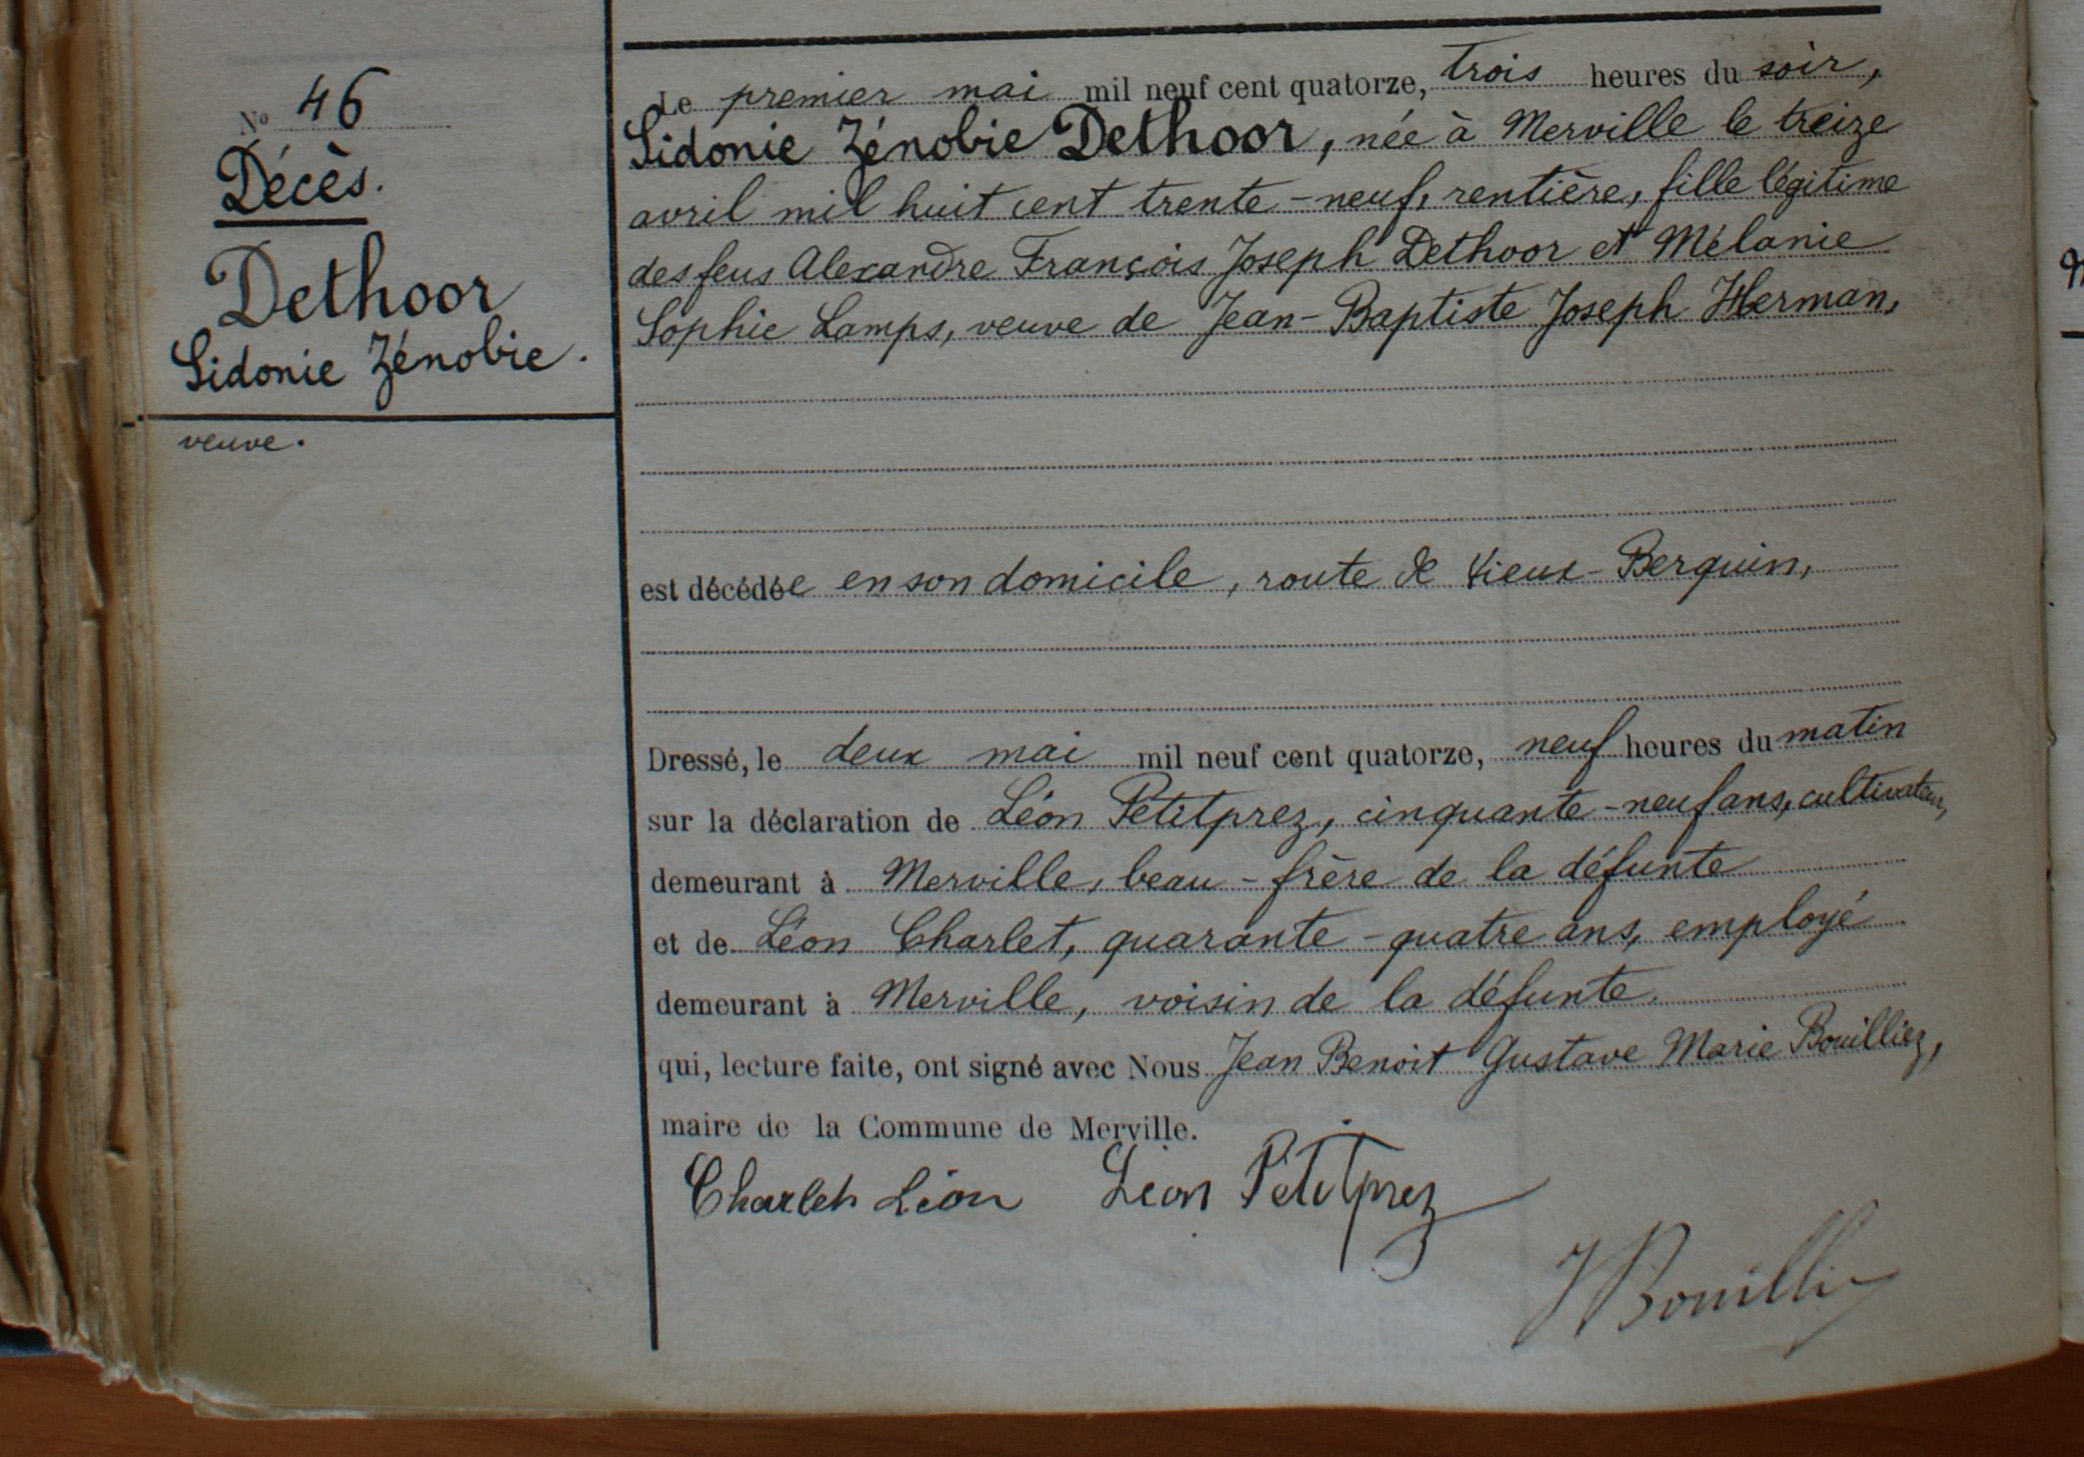 No 46
Décès.
Dethoor
Sidonie Zénobie.
veuve.
Le premier mai mil neuf cent quatorze, trois heures du soir,
Sidonie Zénobie Dethoor, née à Merville le treize
avril mil huit cent trente-neuf, rentière, fille légitime
des feus Alexandre François Joseph Dethoor et Mélanie
Sophie Lamps, veuve de Jean-Baptiste Joseph Herman,
est décédée en son domicile, route de Vieux-Berquin,
Dressé, le deux mai mil neuf cent quatorze, neuf heures du matin
sur la déclaration de Léon Petitprez, cinquante-neuf ans, cultivateur,
demeurant à Merville, beau-frère de la défunte
et de Léon Charlet, quarante-quatre ans, employé
demeurant à Merville, voisin de la défunte.
qui, lecture faite, ont signé avec Nous Jean Benoit Gustave Marie Bouilliez,
maire de la Commune de Merville.
Charlet Léon Léon Petitprez
JBouilliez